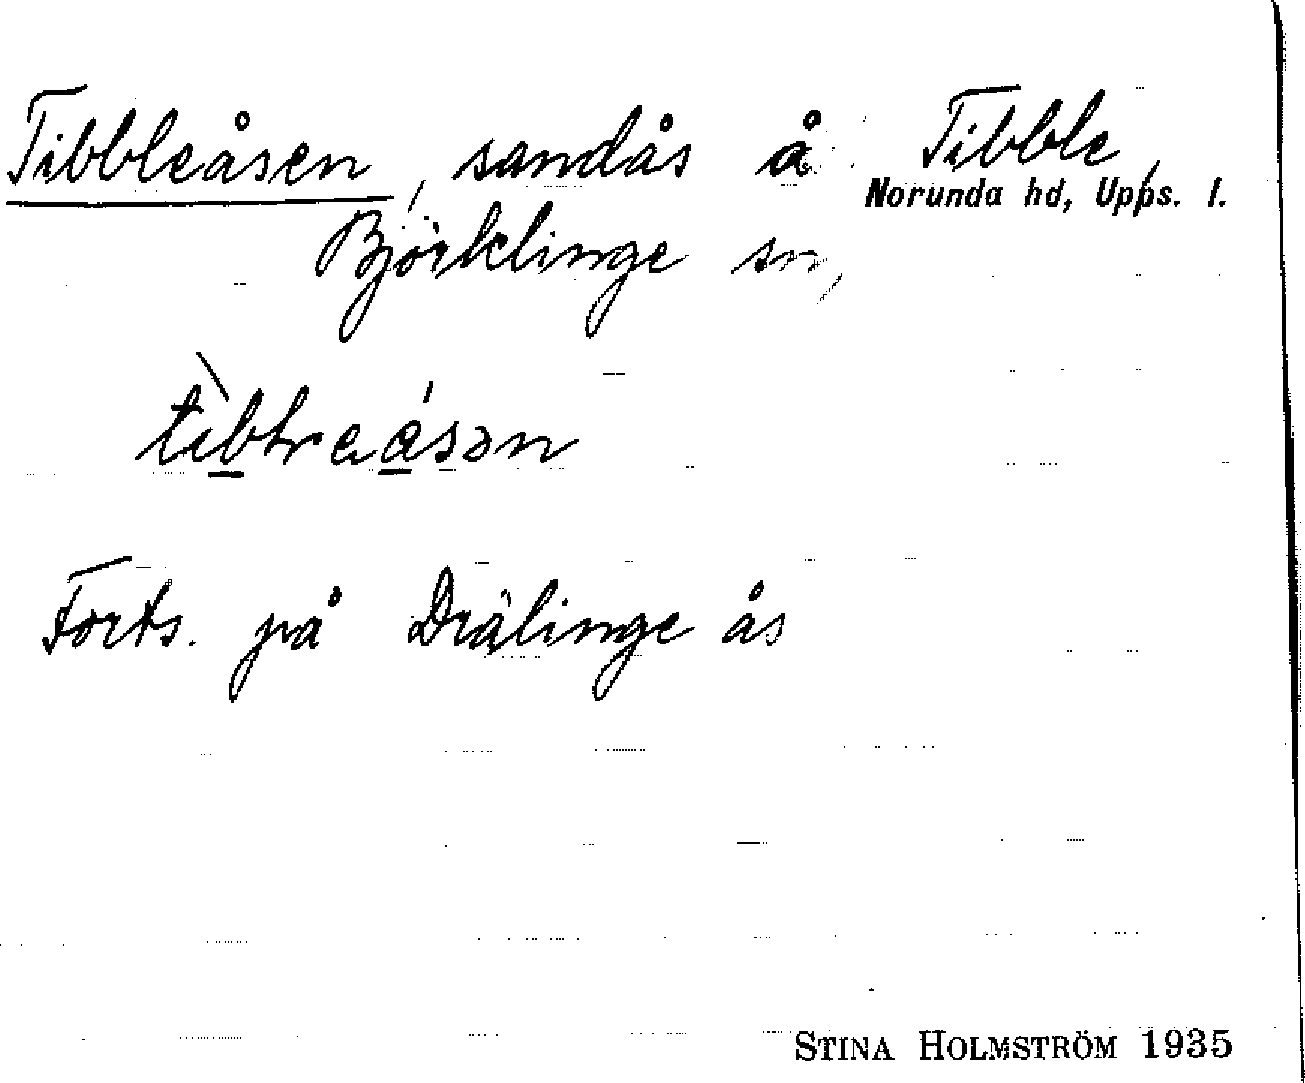 Tibbleåsen, sandås å Tibble,
Norunda hd, Upps. l.
Björklinge sn,
Forts. på Drälinge ås
STINA HOLMSTRÖM 1935